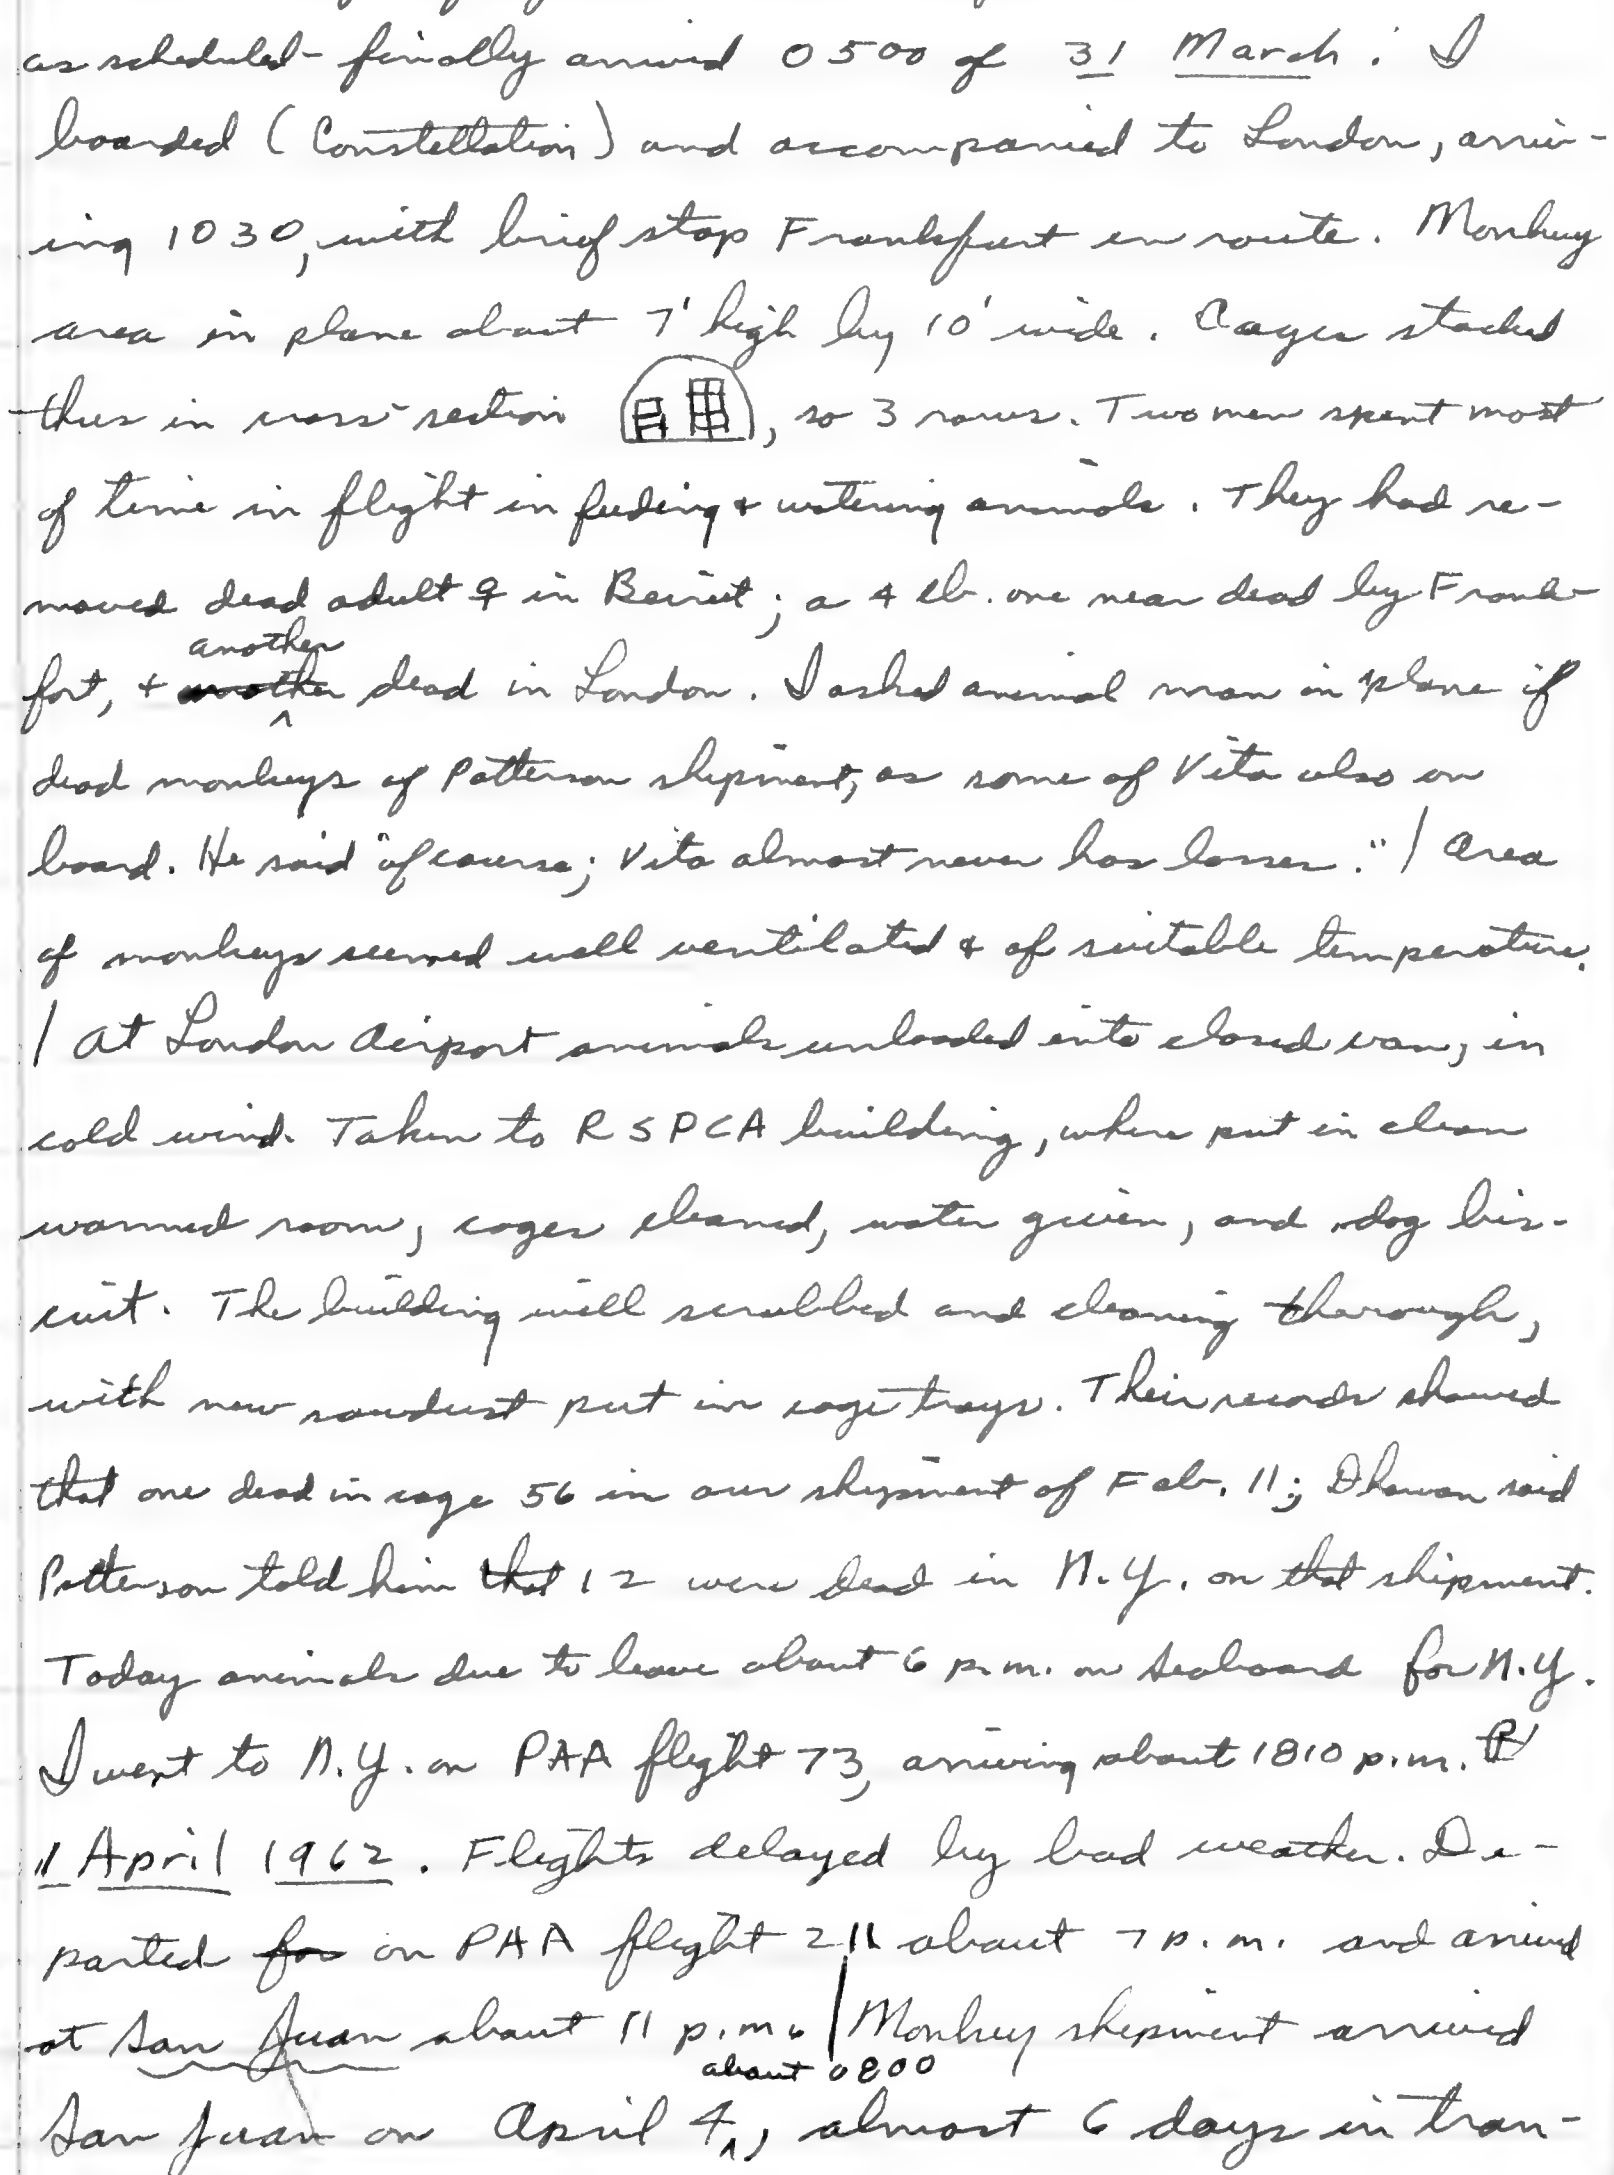 as scheduled - finally arrived 0500 of 31 March. I
boarded (Constellation) and accompanied to London, arriv-
ing 1030, with brief stop Frankfurt en route. Monkey
area in plane about 7' high by 10' wide. Cages stacked
thus in cross-section , so 3 rows. Two men spent most
of time in flight in feeding & watering animals. They had re-
moved dead adult ♀ in Beirut; a 4 lb. one near dead by Frank-
fort, & another another dead in London. I asked animal man in plane if
dead monkeys of Patterson shipment, as some of Vita also on
board. He said "of course; Vita almost never has losses." / Area
of monkeys seemed well ventilated & of suitable temperature.
/ At London Airport animals unloaded into closed van, in
cold wind. Taken to RSPCA building, where put in clean
warmed room, cages cleaned, water given, and dog bis-
cuit. The building well scrubbed and cleaning thorough,
with new sawdust put in cage trays. Their records showed
that one dead in cage 56 in our shipment of Feb. 11; Dhawan said
Patterson told him that 12 were dead in N.Y. on that shipment.
Today animals due to leave about 6 p.m. on Seaboard for N.Y.
I went to N.Y. on PAA flight 73, arriving about 1810 p.m.
1 April 1962. Flights delayed by bad weather. De-
parted for on PAA flight 211 about 7 p.m. and arrived
at San Juan about 11 p.m. / Monkey shipment arrived
San Juan on April 4 about 0800, almost 6 days in tran-